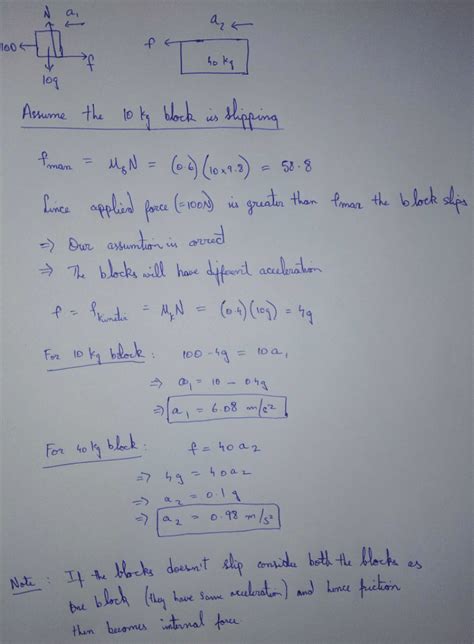 N a₁
100 f
10g
a₂
f 40 kg
Assume the 10 kg block is slipping
fmax = μsN = (0.6)(10×9.8) = 58.8
Since applied force (=100N) is greater than fmax the block slips
⇒ Our assumtion is correct
⇒ The blocks will have different acceleration
f = fkinetic = μkN = (0.4)(10g) = 4g
For 10 kg block : 100 - 4g = 10a₁
⇒ a₁ = 10 - 0.4g
⇒ a₁ = 6.08 m/s²
For 40 kg block : f = 40a₂
⇒ 4g = 40a₂
⇒ a₂ = 0.1g
⇒ a₂ = 0.98 m/s²
Note : If the blocks doesn't slip consider both the blocks as
one block (they have same acceleration) and hence friction
then becomes internal force